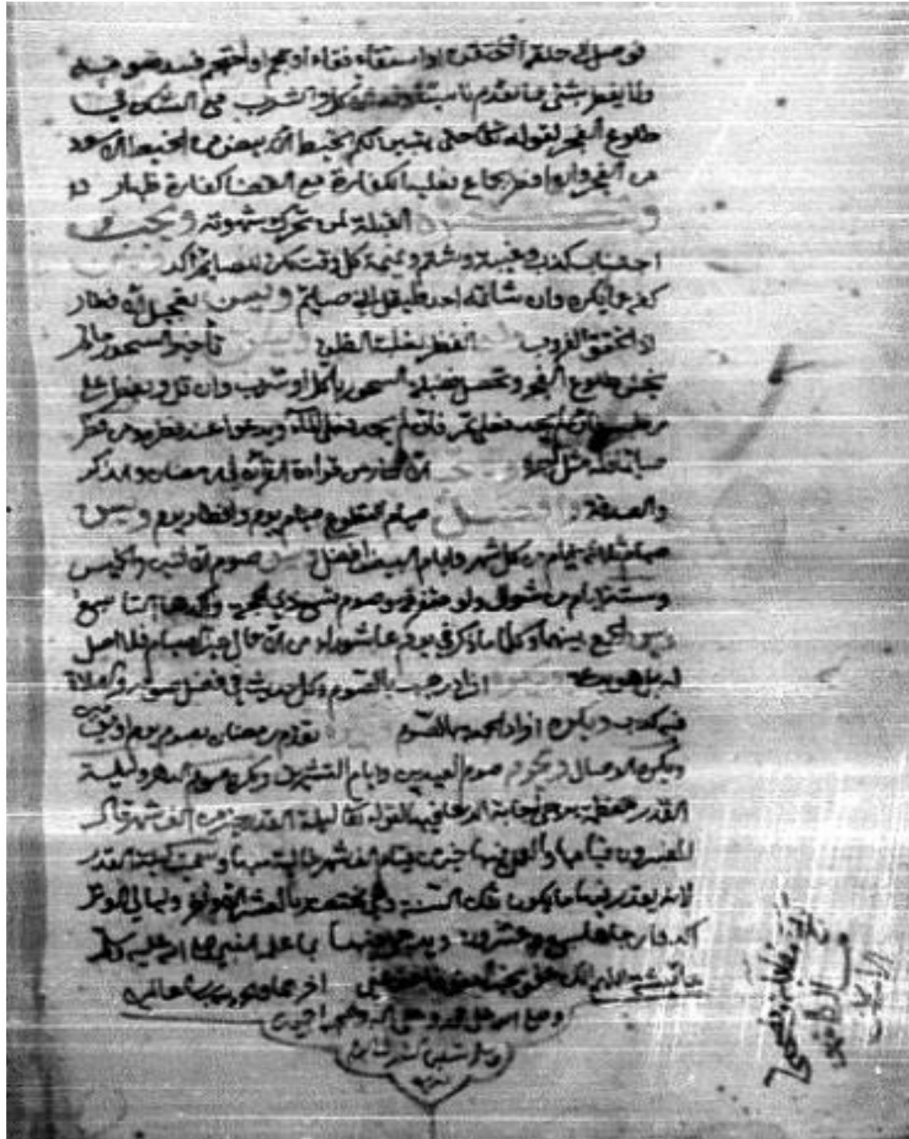 فوصل الى حلقه او احتقن او استقاء فقاء او حجم او احتجم فسد صومه
ولا يفطر بشئ مما تقدم ناسيا وله الاكل والشرب مع الشك في
طلوع الفجر لقوله تعالى حتى يتبين لكم الخيط الابيض من الخيط الاسود
من الفجر وان افطر بجماع فعليه الكفارة مع القضا كفارة ظهار
القبلة لمن تحرك شهوته ويجب
اجتناب كذب وغيبة وشتم ونميمة كل وقت لكن للصايم اكد
وان شاتمه احد فليقل اني صايم ويسن تعجيل الافطار
اذا تحقق الغروب وله الفطر بغلبة الظن ويسن تأخير السحور ما لم
يخش طلوع الفجر وتحصل فضيلة السحور باكل او شرب وان قل ويفطر على
رطب فان لم يجد فعلى تمر فان لم يجد فعلى الماء ويدعوا عند فطره ومن فطر
صائما فله مثل اجره الاكثار من قراءة القرآن في رمضان والذكر
والصدقة وافضل صيام التطوع صيام يوم وافطار يوم ويسن
صيام ثلاثة ايام من كل شهر وايام البيض افضل ويسن صوم الاثنين والخميس
وستة ايام من شوال ولو متفرقة وصوم تسع ذي الحجة وآكدها التاسع
الجمع بينهما وكل ما ذكر في يوم عاشوراء من الاعمال غير الصيام فلا اصل
له بل هو بدعة ويكره افراد رجب بالصوم وكل حديث في فضل صومه والصلاة
فيه كذب ويكره افراد الجمعة بالصوم تقدم رمضان بصوم يوم او يومين
ويكره الوصال ويحرم صوم العيدين وايام التشريق ويكره صوم الدهر وليلة
القدر معظمة يرجى اجابة الدعا فيها لقوله تعالى ليلة القدر خير من الف شهر قال
المفسرون قيامها والعمل فيها خير من قيام الف شهر خالية منها وسميت ليلة القدر
لانه يقدر فيها ما يكون في تلك السنة وهي مختصة بالعشر الاواخر وليالي الوتر
آكد وارجاها سبع وعشرون ويدعو فيها بما علمه النبي صلى الله عليه وسلم
عائشة اللهم انك عفو تحب العفو فاعف عني اخر
وصلى الله على محمد وعلى اله وصحبه اجمعين